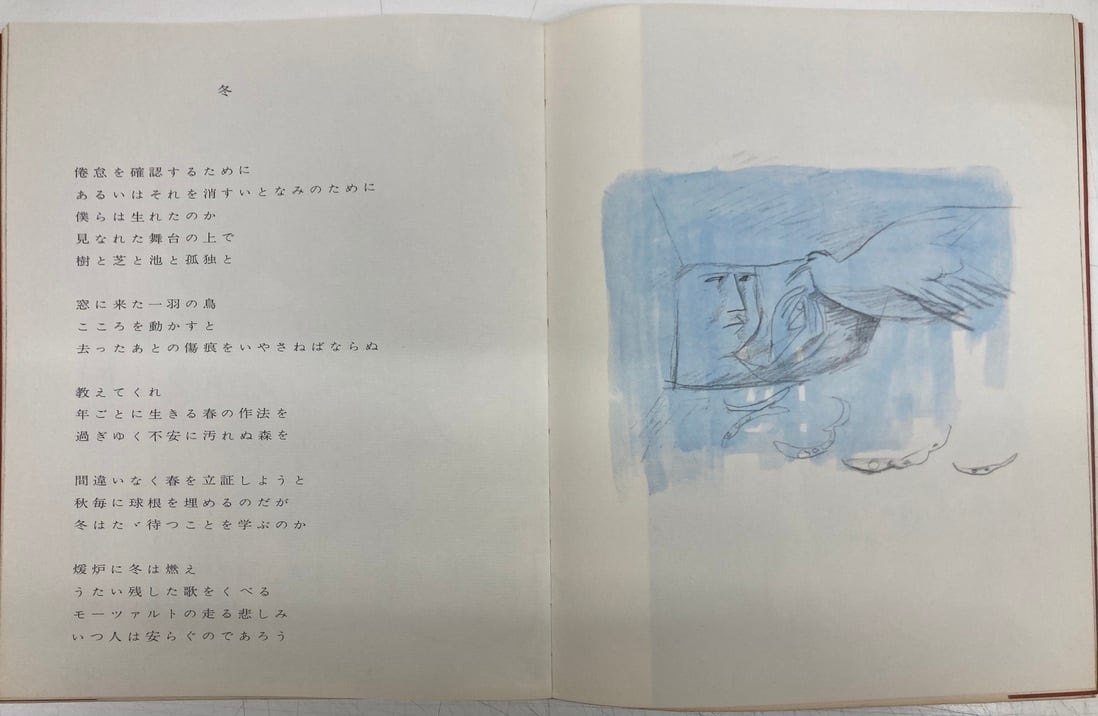 冬
倦怠を確認するために
あるいはそれを消すいとなみのために
僕らは生れたのか
見なれた舞台の上で
樹と芝と池と孤独と
窓に来た一羽の鳥
こころを動かすと
去ったあとの傷痕をいやさねばならぬ
教えてくれ
年ごとに生きる春の作法を
過ぎゆく不安に汚れぬ森を
間違いなく春を立証しようと
秋毎に球根を埋めるのだが
冬はたゞ待つことを学ぶのか
煖炉に冬は燃え
うたい残した歌をくべる
モーツァルトの走る悲しみ
いつ人は安らぐのであろう